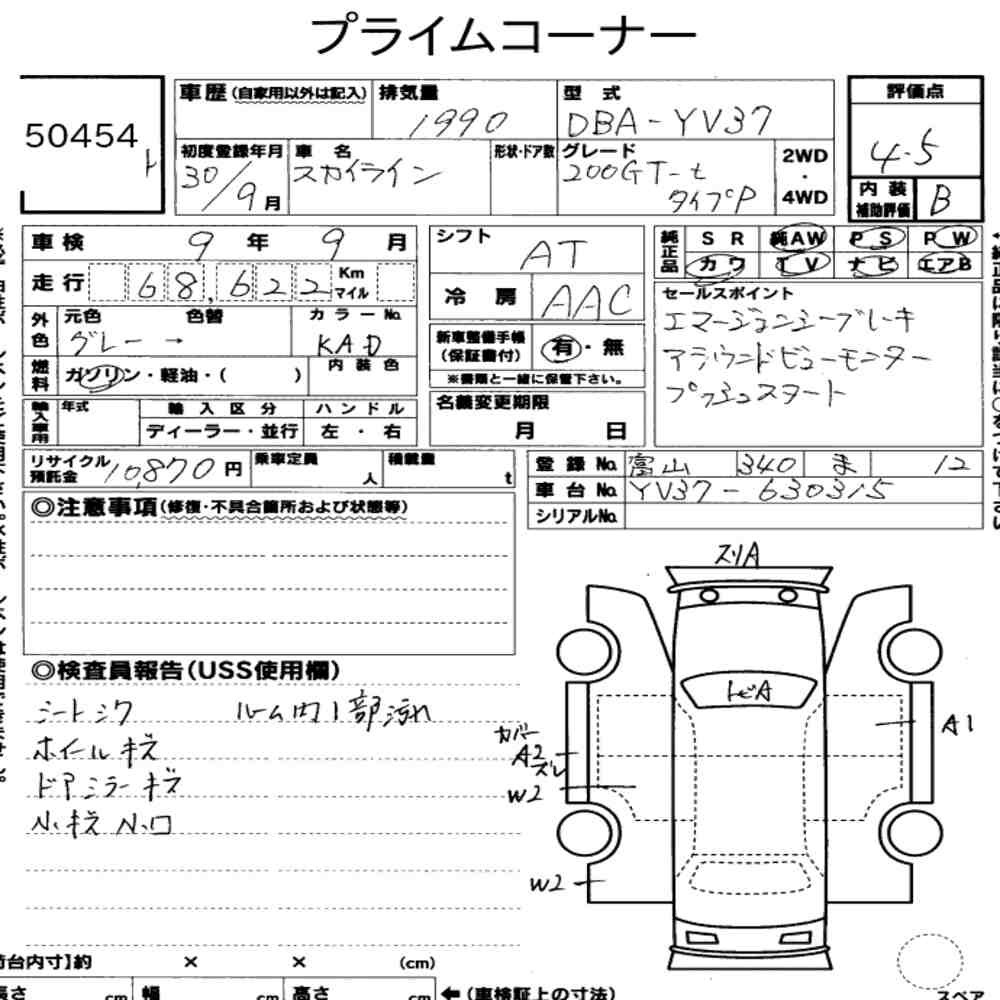 プライムコーナー
50454
ト
車歴 (自家用以外は記入)
排気量
1990
型式
DBA-YV37
評価点
4.5
初度登録年月
30/9月
車名
スカイライン
形状・ドア数
グレード
200GT-t
タイプP
2WD
・
4WD
内装
補助評価
B
車検 9年 9月
走行 68,622 Km マイル
外色
元色 色替
グレー →
カラーNo.
KAD
燃料
ガソリン・軽油・( )
内装色
輸入車用
年式
輸入区分
ディーラー・並行
ハンドル
左・右
シフト
AT
冷房
AAC
新車整備手帳
(保証書付)
有・無
※書類と一緒に保管下さい。
名義変更期限
月 日
純正品
SR 純AW PS PW
カワ TV ナビ エアB
セールスポイント
エマージェンシーブレーキ
アラウンドビューモニター
プッシュスタート
リサイクル
預託金 10,870円
乗車定員
人
積載量
t
登録No. 富山 340 ま 12
車台No. YV37-630315
シリアルNo.
◎注意事項(修復・不具合箇所および状態等)
◎検査員報告(USS使用欄)
シートシワ ルーム内1部汚れ
ホイールキズ
ドアミラーキズ
小キズ 小凹
スリA
トビA
A1
カバー
A2
ズレ
W2
W2
荷台内寸】約 × × (cm)
長さ cm 幅 cm 高さ cm ←(車検証上の寸法)
スペア